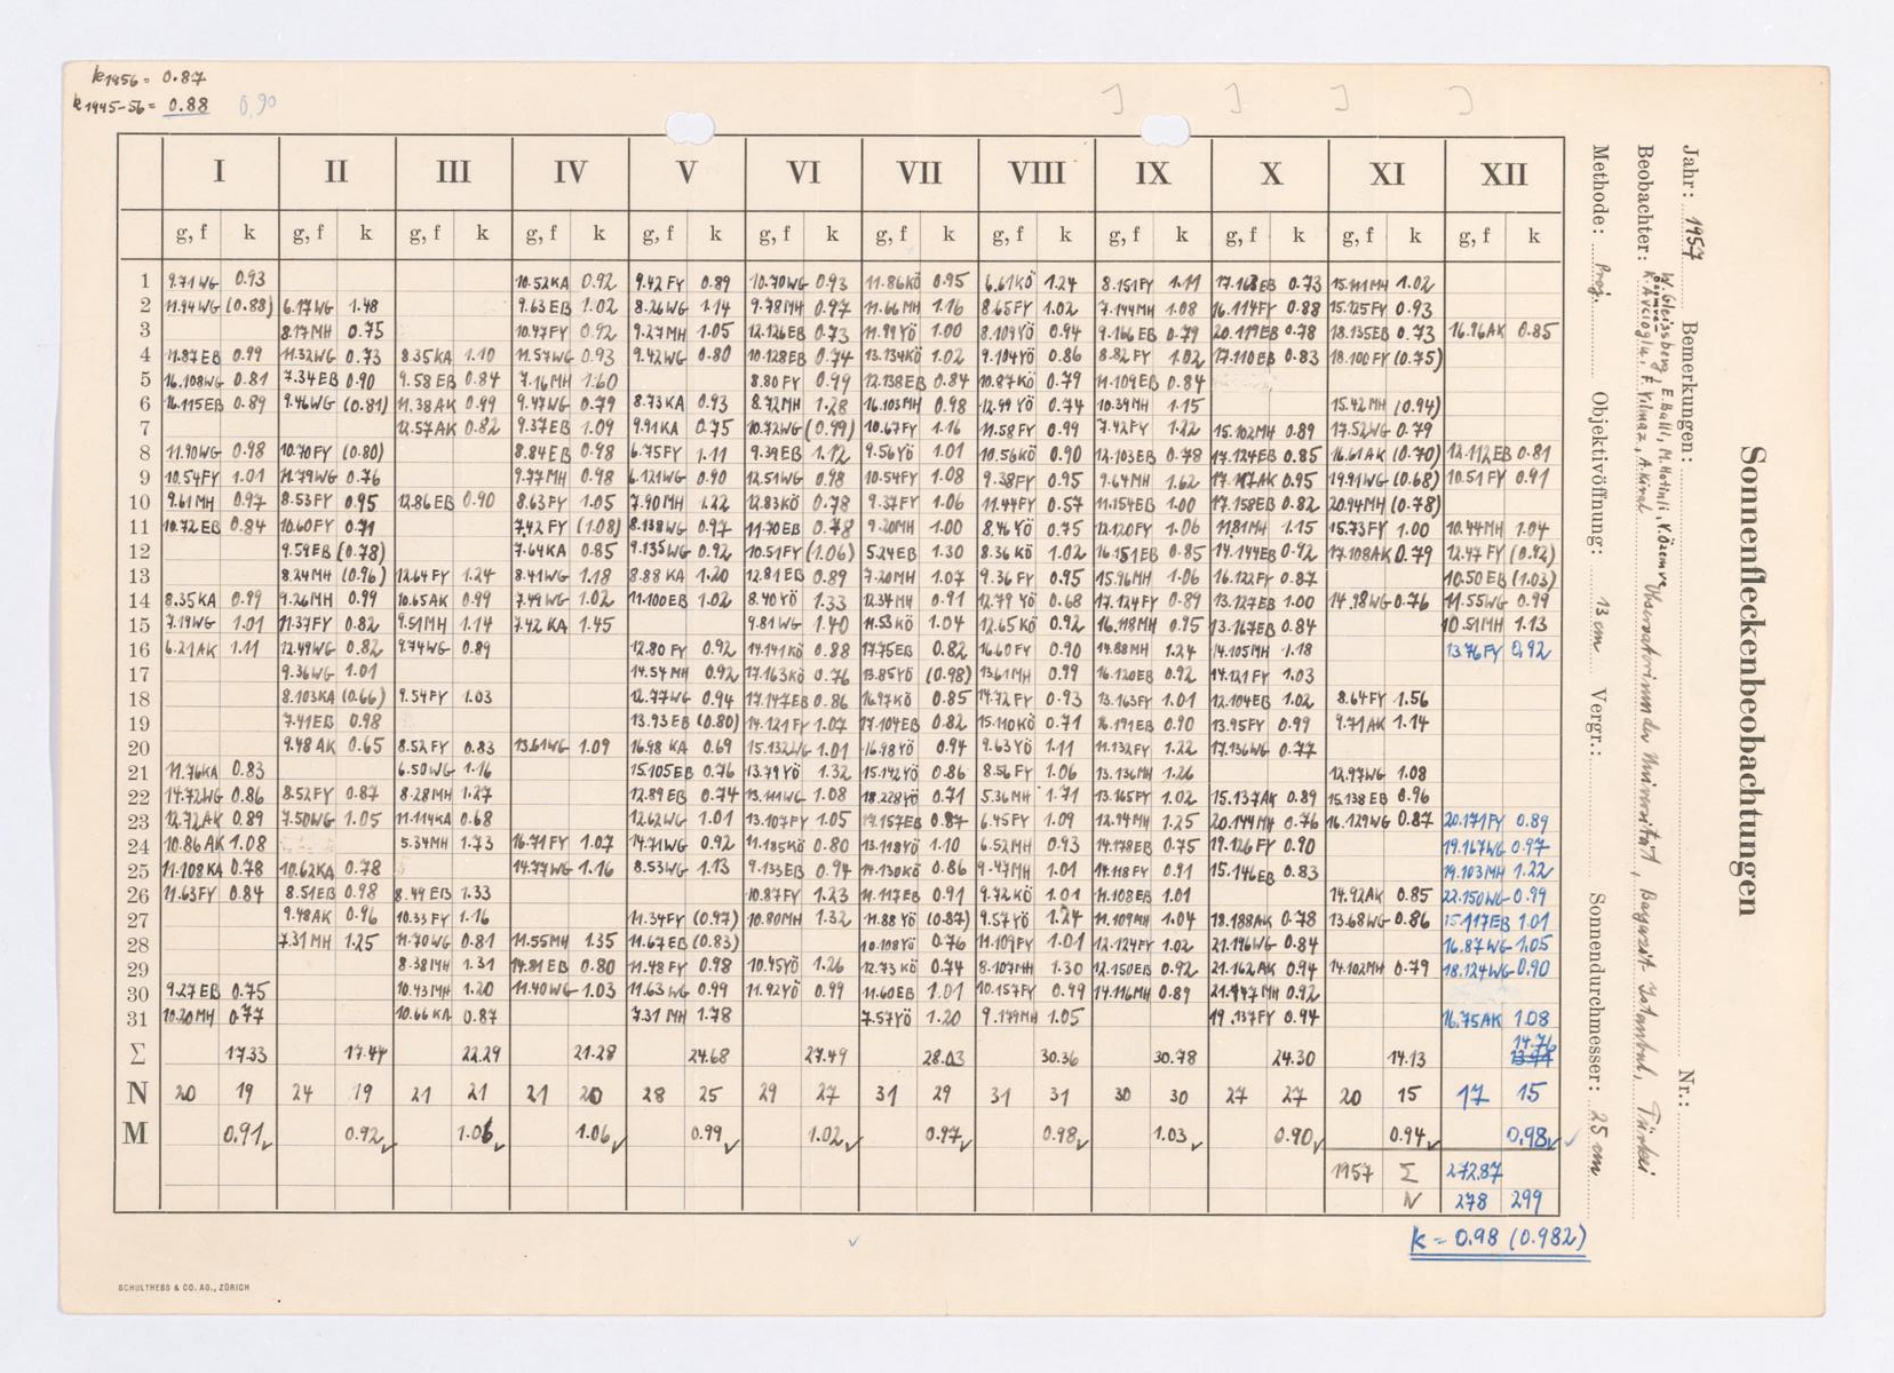 k1956 = 0.87
k1945-56 = 0.88 0.90
Sonnenfleckenbeobachtungen
Jahr: 1957 Bemerkungen: Nr.:
Beobachter: W. Gleissberg, E. Balli, M. Hotinli, Y. Özemre
K. Avcıoğlu, F. Yılmaz, A. Kıral Observatorium der Universität, Bayazıt-Istanbul, Türkei
Methode: Proj. Objektivöffnung: 13 cm Vergr.: Sonnendurchmesser: 25 cm
I II III IV V VI VII VIII IX X XI XII
g, f k g, f k g, f k g, f k g, f k g, f k g, f k g, f k g, f k g, f k g, f k g, f k
1 9.71WG 0.93 10.52KA 0.92 9.42FY 0.89 10.70WG 0.93 11.86KÖ 0.95 6.61KÖ 1.24 8.151FY 1.11 17.163EB 0.73 15.111MH 1.02
2 11.94WG (0.88) 6.17WG 1.48 9.63EB 1.02 8.26WG 1.14 9.78MH 0.97 11.66MH 1.16 8.65FY 1.02 7.144MH 1.08 16.114FY 0.88 15.125FY 0.93
3 8.17MH 0.75 10.47FY 0.92 9.27MH 1.05 12.126EB 0.73 11.99YÖ 1.00 8.109YÖ 0.94 9.166EB 0.79 20.119EB 0.78 18.135EB 0.73 16.96AK 0.85
4 11.87EB 0.99 11.32WG 0.73 8.35KA 1.10 11.57WG 0.93 9.42WG 0.80 10.128EB 0.74 13.134KÖ 1.02 9.104YÖ 0.86 8.82FY 1.02 17.110EB 0.83 18.100FY (0.75)
5 16.108WG 0.81 7.34EB 0.90 9.58EB 0.84 7.16MH 1.60 8.80FY 0.99 12.138EB 0.84 10.87KÖ 0.79 11.109EB 0.84
6 16.115EB 0.89 9.46WG (0.81) 11.38AK 0.99 9.47WG 0.79 8.73KA 0.93 8.72MH 1.28 16.103MH 0.98 12.99YÖ 0.74 10.39MH 1.15 15.42MH (0.94)
7 12.57AK 0.82 9.37EB 1.09 9.91KA 0.75 10.72WG (0.99) 10.67FY 1.16 11.58FY 0.99 7.42FY 1.22 15.102MH 0.89 17.52WG 0.79
8 11.90WG 0.98 10.70FY (0.80) 8.84EB 0.98 6.75FY 1.11 9.39EB 1.12 9.56YÖ 1.01 10.56KÖ 0.90 12.103EB 0.78 17.124EB 0.85 16.61AK (0.70) 12.112EB 0.81
9 10.54FY 1.01 11.79WG 0.76 9.77MH 0.98 6.121WG 0.90 12.51WG 0.98 10.54FY 1.08 9.38FY 0.95 9.64MH 1.62 17.117AK 0.95 19.91WG (0.68) 10.51FY 0.91
10 9.61MH 0.97 8.53FY 0.95 12.86EB 0.90 8.63FY 1.05 7.90MH 1.22 12.83KÖ 0.78 9.37FY 1.06 11.44FY 0.57 11.154EB 1.00 17.158EB 0.82 20.94MH (0.78)
11 10.72EB 0.84 10.60FY 0.71 7.42FY (1.08) 8.138WG 0.97 11.70EB 0.78 9.20MH 1.00 8.46YÖ 0.75 12.120FY 1.06 11.81MH 1.15 15.73FY 1.00 10.44MH 1.04
12 9.59EB (0.78) 7.64KA 0.85 9.135WG 0.92 10.51FY (1.06) 5.24EB 1.30 8.36KÖ 1.02 16.151EB 0.85 14.144EB 0.92 17.108AK 0.79 12.47FY (0.92)
13 8.24MH (0.96) 12.64FY 1.24 8.41WG 1.18 8.88KA 1.20 12.81EB 0.89 7.20MH 1.07 9.36FY 0.95 15.96MH 1.06 16.122FY 0.87 10.50EB (1.03)
14 8.35KA 0.99 9.26MH 0.99 10.65AK 0.99 7.49WG 1.02 11.100EB 1.02 8.40YÖ 1.33 12.34MH 0.91 12.79YÖ 0.68 17.124FY 0.89 13.127EB 1.00 14.98WG 0.76 11.55WG 0.99
15 7.19WG 1.01 11.37FY 0.82 9.51MH 1.14 7.42KA 1.45 9.81WG 1.40 11.53KÖ 1.04 12.65KÖ 0.92 16.118MH 0.95 13.167EB 0.84 10.51MH 1.13
16 6.21AK 1.11 12.49WG 0.82 9.74WG 0.89 12.80FY 0.92 14.141KÖ 0.88 17.75EB 0.82 16.60FY 0.90 14.88MH 1.24 14.105MH 1.18 13.76FY 0.92
17 9.36WG 1.01 14.54MH 0.92 17.163KÖ 0.76 13.85YÖ (0.98) 13.61MH 0.99 16.120EB 0.92 14.121FY 1.03
18 8.103KA (0.66) 9.54FY 1.03 12.77WG 0.94 17.147EB 0.86 16.97KÖ 0.85 14.72FY 0.93 13.163FY 1.01 12.104EB 1.02 8.64FY 1.56
19 7.41EB 0.98 13.93EB (0.80) 14.121FY 1.07 17.104EB 0.82 15.110KÖ 0.71 16.191EB 0.90 13.95FY 0.99 9.71AK 1.14
20 9.48AK 0.65 8.52FY 0.83 13.61WG 1.09 16.98KA 0.69 15.132WG 1.01 16.98YÖ 0.94 9.63YÖ 1.11 11.132FY 1.22 17.136WG 0.77
21 11.76KA 0.83 6.50WG 1.16 15.105EB 0.76 13.79YÖ 1.32 15.142YÖ 0.86 8.56FY 1.06 13.136MH 1.26 12.97WG 1.08
22 14.72WG 0.86 8.52FY 0.87 8.28MH 1.27 12.89EB 0.74 13.111WG 1.08 18.228YÖ 0.71 5.36MH 1.71 13.165FY 1.02 15.137AK 0.89 15.138EB 0.96
23 12.72AK 0.89 7.50WG 1.05 11.114KA 0.68 12.62WG 1.01 13.107FY 1.05 19.157EB 0.87 6.45FY 1.09 12.94MH 1.25 20.144MH 0.76 16.129WG 0.87 20.171FY 0.89
24 10.86AK 1.08 5.34MH 1.73 16.71FY 1.07 14.71WG 0.92 11.185KÖ 0.80 13.118YÖ 1.10 6.52MH 0.93 14.178EB 0.75 19.126FY 0.90 19.167WG 0.97
25 11.108KA 0.78 10.62KA 0.78 14.77WG 1.16 8.53WG 1.13 9.133EB 0.94 14.130KÖ 0.86 9.47MH 1.01 14.118FY 0.91 15.146EB 0.83 19.103MH 1.22
26 11.63FY 0.84 8.51EB 0.98 8.49EB 1.33 10.87FY 1.23 11.117EB 0.91 9.72KÖ 1.01 11.108EB 1.01 14.92AK 0.85 22.150WG 0.99
27 9.48AK 0.96 10.33FY 1.16 11.34FY (0.97) 10.80MH 1.32 11.88YÖ (0.87) 9.57YÖ 1.24 11.109MH 1.04 18.188AK 0.78 13.68WG 0.86 15.117EB 1.01
28 7.31MH 1.25 11.70WG 0.81 11.55MH 1.35 11.67EB (0.83) 10.108YÖ 0.76 11.109FY 1.01 12.124FY 1.02 21.196WG 0.84 16.87WG 1.05
29 8.38MH 1.31 14.81EB 0.80 11.48FY 0.98 10.45YÖ 1.26 12.73KÖ 0.74 8.107MH 1.30 12.150EB 0.92 21.162AK 0.94 14.102MH 0.79 18.124WG 0.90
30 9.27EB 0.75 10.43MH 1.20 11.40WG 1.03 11.63WG 0.99 11.92YÖ 0.99 11.60EB 1.01 10.157FY 0.99 14.116MH 0.89 21.447MH 0.92
31 10.20MH 0.77 10.66KA 0.87 7.31MH 1.78 7.57YÖ 1.20 9.179MH 1.05 19.137FY 0.94 16.75AK 1.08
Σ 17.33 17.44 22.29 21.28 24.68 27.49 28.03 30.36 30.78 24.30 14.13 14.76
N 20 19 24 19 21 21 21 20 28 25 29 27 31 29 31 31 30 30 27 27 20 15 17 15
M 0.91 0.92 1.06 1.06 0.99 1.02 0.97 0.98 1.03 0.90 0.94 0.98
1957 Σ 272.87
N 278 299
k = 0.98 (0.982)
SCHULTHESS & CO. AG., ZÜRICH